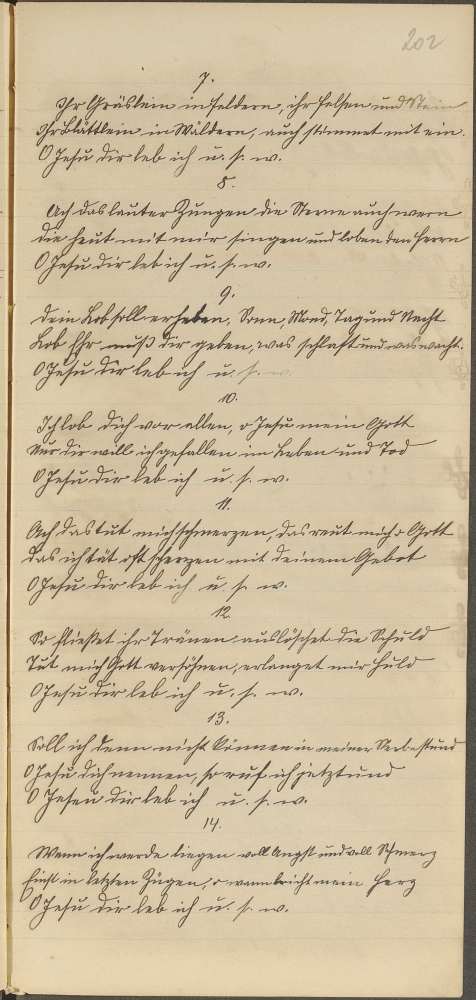 202
7.
Ihr Gräslein in Feldern, ihr Felsen und Stein
Ihr Blättlein in Wäldern, auch stimmet mit ein.
O Jesu dir leb ich u. s. w.
8.
Ach das lauter Zungen die Sterne auch wern
die heut mit mir singen und loben den Herrn
O Jesu dir leb ich u. s. w.
9.
Dein Lob soll erheben, Sonn, Mond, Tag und Nacht
Lob Ehr muß dir geben, was schlaft und was wacht.
O Jesu dir leb ich u. s. w.
10.
Ich lob dich vor allen, o Jesu mein Gott
Nur dir will ich gefallen im Leben und Tod
O Jesu dir leb ich u. s. w.
11.
Ach das tut mich schmerzen, das reut mich o Gott
Das ich tät oft scherzen mit deinem Gebot
O Jesu dir leb ich u. s. w.
12.
So fließet ihr Tränen auslöschet die Schuld
Tut mich Gott versöhnen, erlanget mir Huld
O Jesu dir leb ich u. s. w.
13.
Soll ich denn nicht können in meiner Sterbestund
O Jesu dich nennen, so ruf ich jetztund
O Jesu dir leb ich u. s. w.
14.
Wenn ich werde liegen voll Angst und voll Schmerz
Einst in letzten Zügen, o wann bricht mein Herz
O Jesu dir leb ich u. s. w.